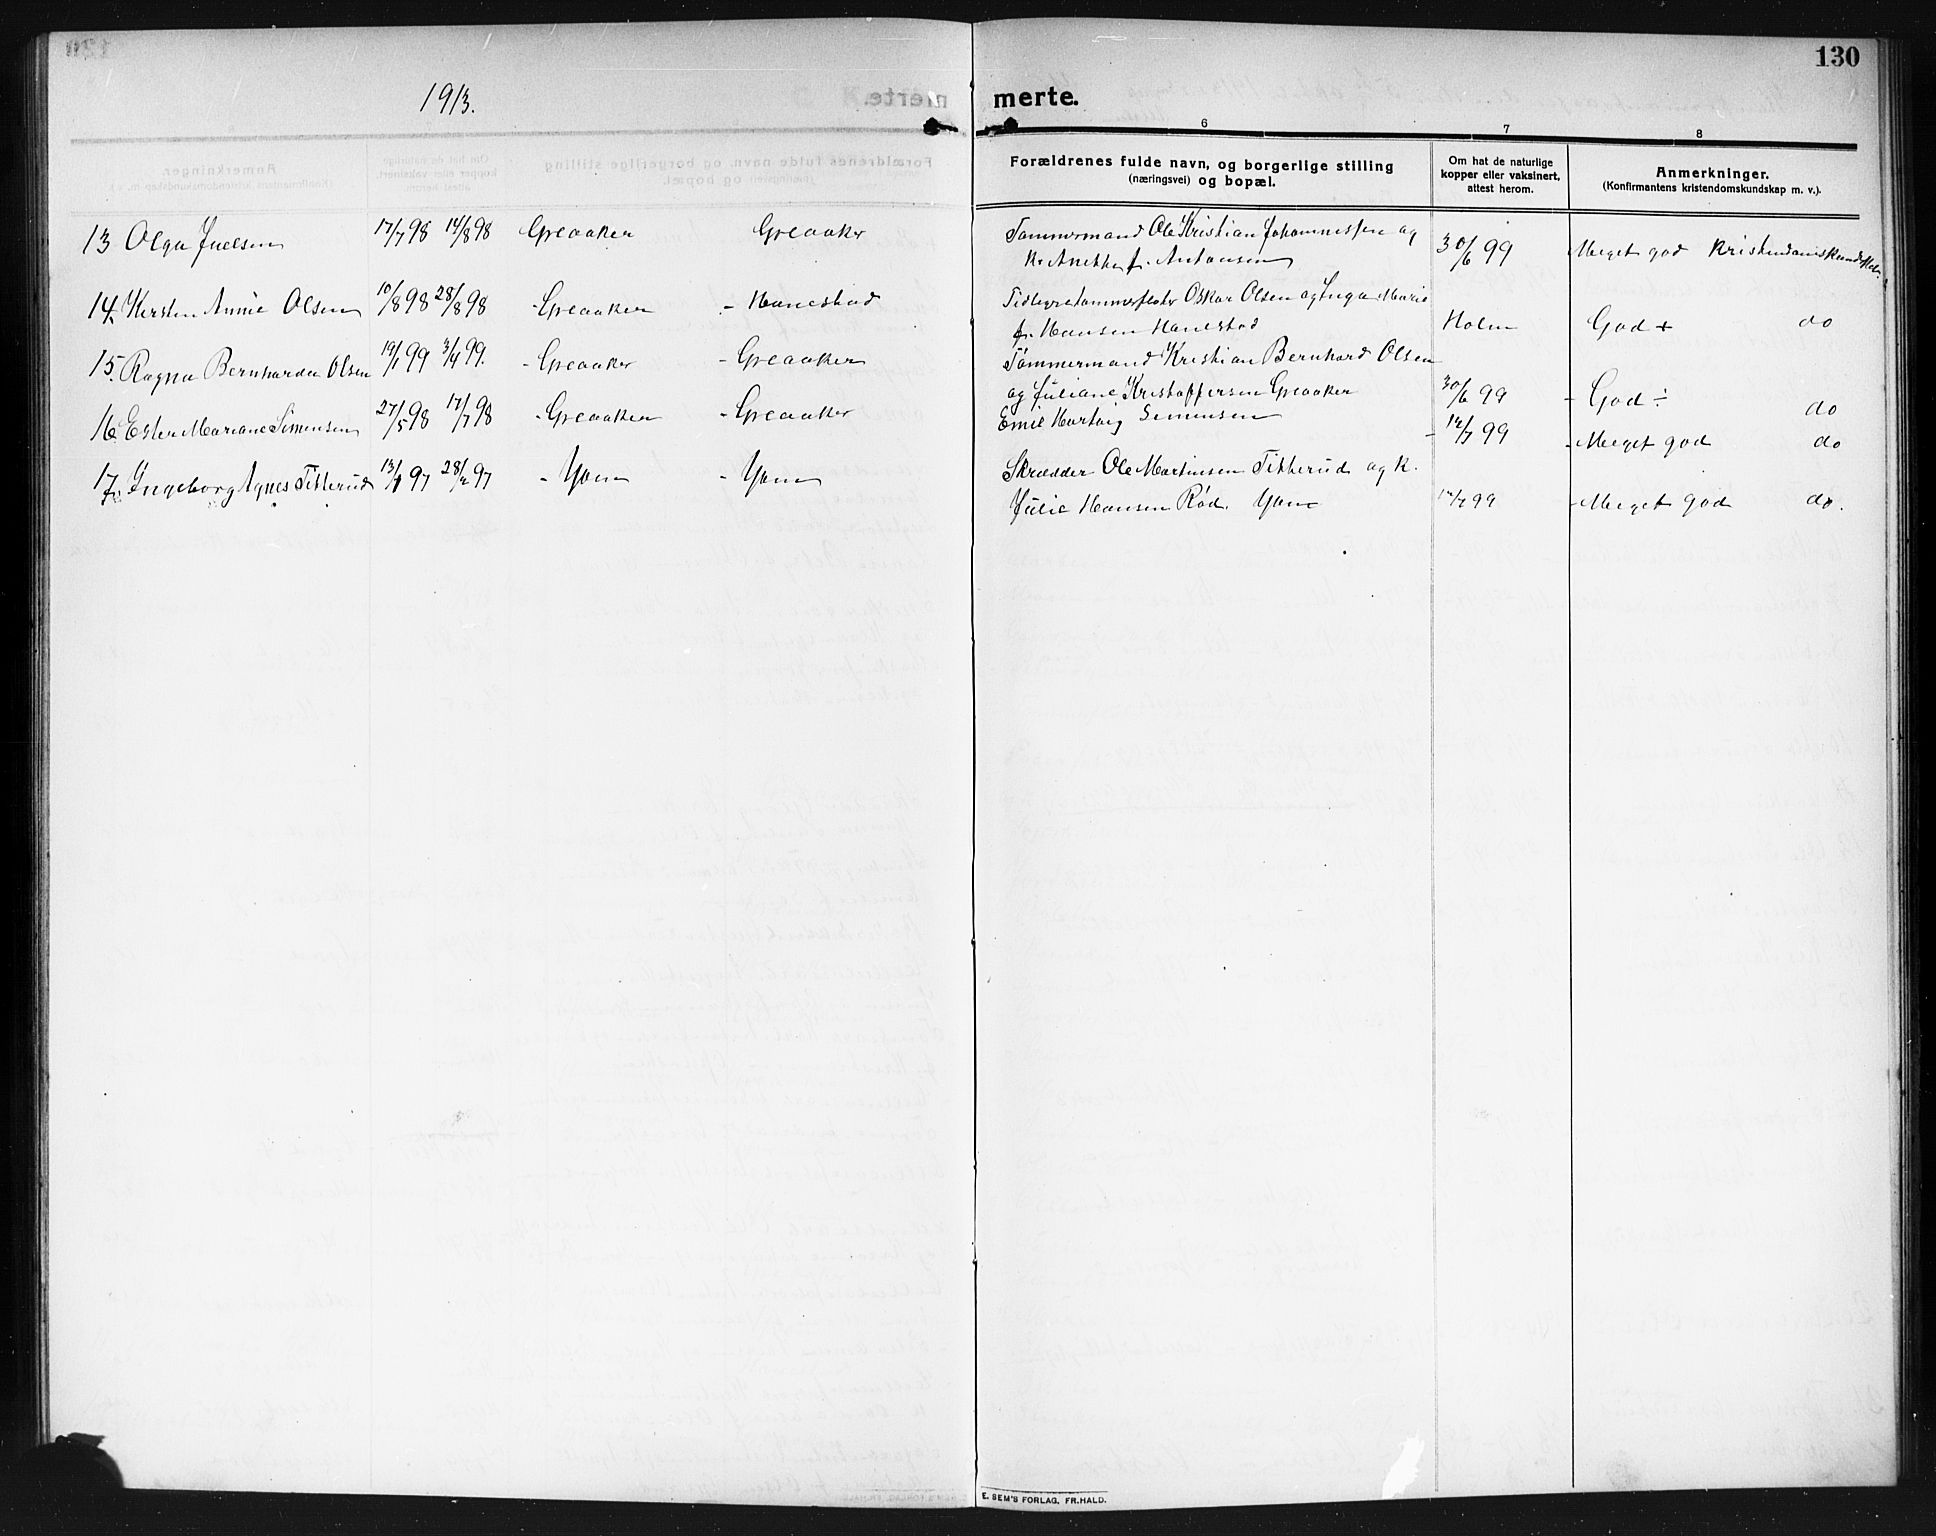 1913.
13 Olga Juelsen 17/7 98 14/8 98 Greaaker Greaaker
14. Kirsten Annie Olsen 10/8 98 28/8 98 - Greaaker - Hanestad
15. Ragna Bernharda Olsen 19/1 99 3/4 99. - Greaaker - Greaaker
16. Ester Mariane Simensen 27/5 98 17/7 98 - Greaaker - Greaaker
17. Ingeborg Agnes Titterud 13/1 97 28/2 97 - Yven - Yven
130
merte.
6 7 8
Forældrenes fulde navn, og borgerlige stilling
(næringsvei) og bopæl.
Om hat de naturlige
kopper eller vaksinert,
attest herom.
Anmerkninger.
(Konfirmantens kristendomskundskap m. v.).
Tømmermand Ole Kristian Johannessen og
K. Anette f. Antonsen 30/6 99 Meget god kristendomskundskab.
Oskar Olsen og Inga Marie
f. Hansen Hanestad Holm God + do
Tømmermand Kristian Bernhard Olsen
og Juliane Kristoffersen Greaaker 30/6 99 - God ÷ do
Emil Hartvig Simensen - 12/7 99 - Meget god do
Skrædder Ole Martinsen Titterud og K.
Julie Hansen Rød. Yven 12/7 99 - Meget god do.
E. SEM'S FORLAG, FR.HALD.